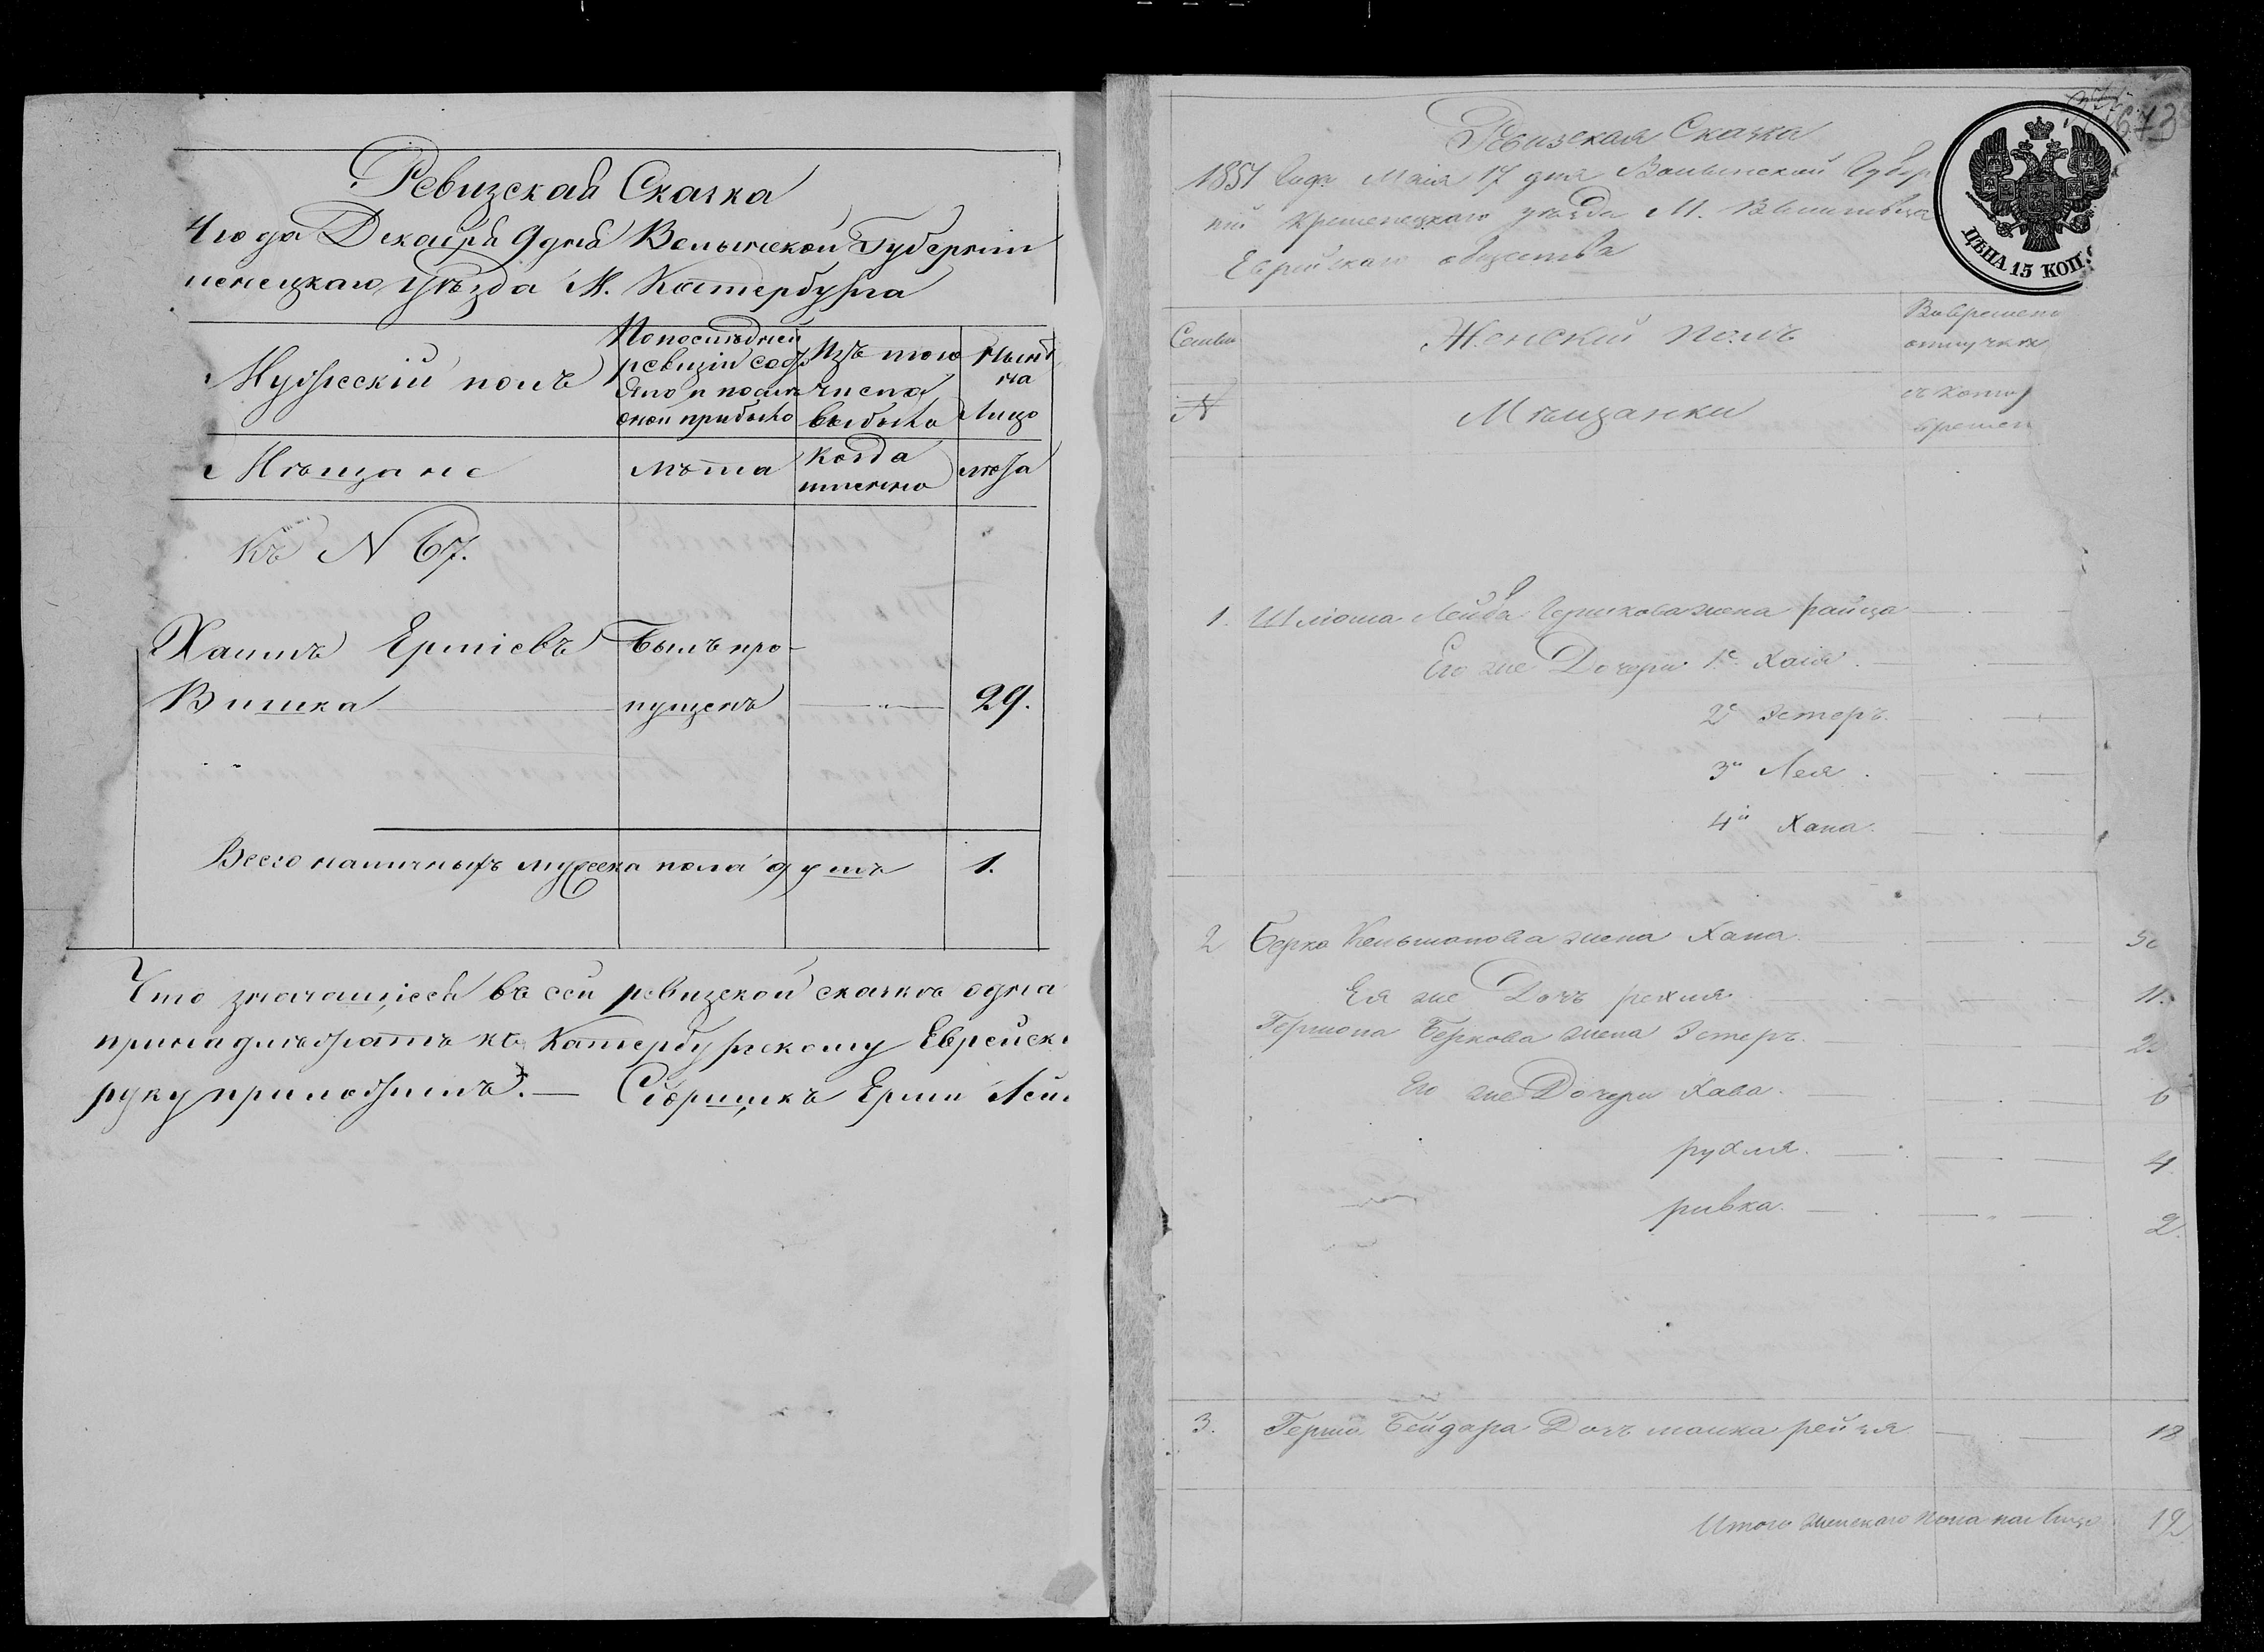 Ревизская Сказка
4 года Декабря 9 дня Волынской Губернiи
менецкаго Уѣзда М. Катербурга
Мужескiй полъ
По последней ревизiи состояло и после оной прибыло
Изъ того числа выбыло
Нынѣ на Лицо
Мѣщане
лѣта
Когда именно
лѣта
Къ N 67.
Хаимъ Ершiевъ Былъ про-
Вишка пущенъ 29.
Всего наличныхъ мужеска пола душъ 1.
Что значащiеся въ сей ревизской сказкѣ одна
принадлежатъ къ Катербургскому Еврейск
руку приложилъ. — Сборщикъ Ерши Лей
673
Ревизская Сказка
1851 Года Маiя 17 дня Волынской Губер
нiи Кременецкаго уѣзда М. Вышгородка
Еврейскаго общества
ЦѢНА 15 КОП.
Семьи
Женскiй полъ
Во временно отлучкѣ
N
Мѣщанки
съ котор времен
1. Шлиома Лейба Гершкова жена райца
Его же Дочери 1е Хаiя
2е Эстеръ.
3я Лея.
4я Хана.
2 Берка Кельманова жена Хана. 50
Ея же Дочь рехля 11.
Гершона Беркова жена Эстеръ. 2
Его же Дочери Хава. 6
рухля. 4.
ривка. 2.
3. Герша Бейдара Дочь малка рейзя 18
Итого женскаго пола на лицо 12